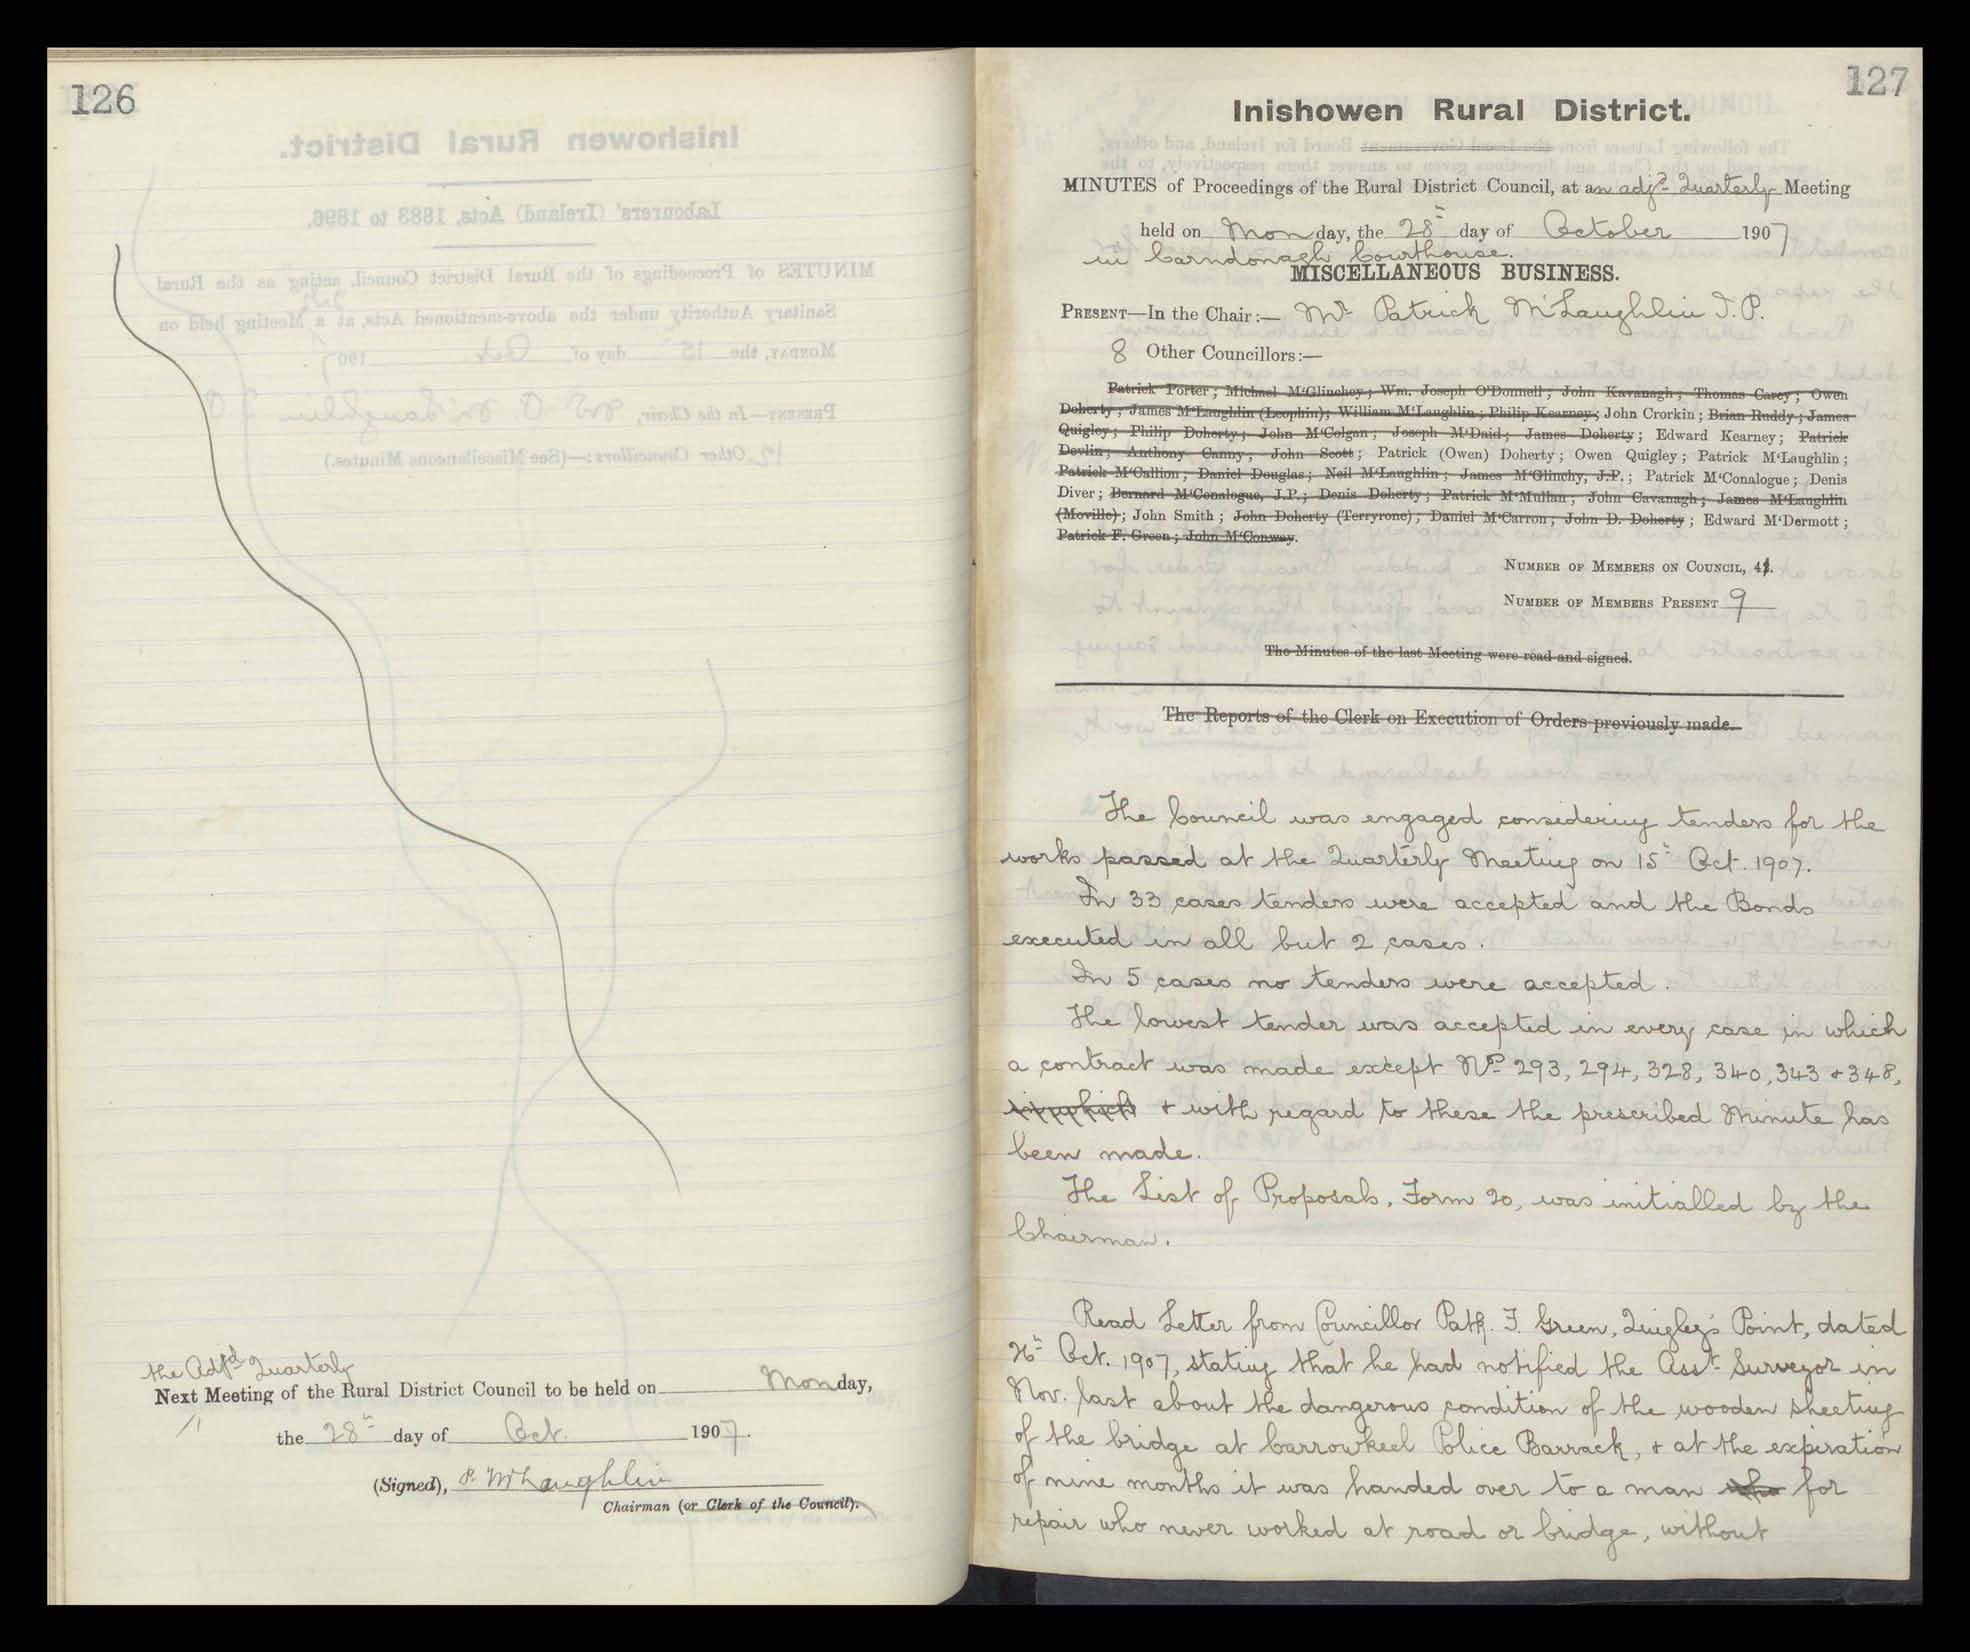 126
the Adjd Quarterly
Next Meeting of the Rural District Council to be held on Monday,
the 28th day of Oct. 1907.
(Signed), P. McLaughlin
Chairman (or Clerk of the Council).
127
Inishowen Rural District.
MINUTES of Proceedings of the Rural District Council, at an adjd Quarterly Meeting
held on Monday, the 28th day of October 1907
in Carndonagh Courthouse.
MISCELLANEOUS BUSINESS.
PRESENT—In the Chair:— Mr Patrick McLaughlin J.P.
8 Other Councillors:—
Patrick Porter; Michael M'Glinchey; Wm. Joseph O'Donnell; John Kavanagh; Thomas Carey; Owen
Doherty; James M'Laughlin (Leophin); William M'Laughlin; Philip Kearney; John Crorkin; Brian Ruddy; James
Quigley; Philip Doherty; John M'Colgan; Joseph M'Daid; James Doherty; Edward Kearney; Patrick
Devlin; Anthony Canny; John Scott; Patrick (Owen) Doherty; Owen Quigley; Patrick M'Laughlin;
Patrick M'Callion; Daniel Douglas; Neil M'Laughlin; James M'Glinchy, J.P.; Patrick M'Conalogue; Denis
Diver; Bernard M'Conalogue, J.P.; Denis Doherty; Patrick M'Mullan; John Cavanagh; James M'Laughlin
(Moville); John Smith; John Doherty (Terryrone); Daniel M'Carron; John D. Doherty; Edward M'Dermott;
Patrick F. Green; John M'Conway.
NUMBER OF MEMBERS ON COUNCIL, 41.
NUMBER OF MEMBERS PRESENT 9
The Minutes of the last Meeting were read and signed.
The Reports of the Clerk on Execution of Orders previously made.
The Council was engaged considering tenders for the
works passed at the Quarterly Meeting on 15th Oct. 1907.
In 33 cases tenders were accepted and the Bonds
executed in all but 2 cases.
In 5 cases no tenders were accepted.
The lowest tender was accepted in every case in which
a contract was made except Nos 293, 294, 328, 340, 343 & 348,
in which & with regard to these the prescribed Minute has
been made.
The List of Proposals, Form 20, was initialled by the
Chairman.
Read Letter from Councillor Patk. F. Green, Quigley's Point, dated
26th Oct. 1907, stating that he had notified the Asst Surveyor in
Nov. last about the dangerous condition of the wooden sheeting
of the bridge at Carrowkeel Police Barrack, & at the expiration
of nine months it was handed over to a man who for
repair who never worked at road or bridge, without